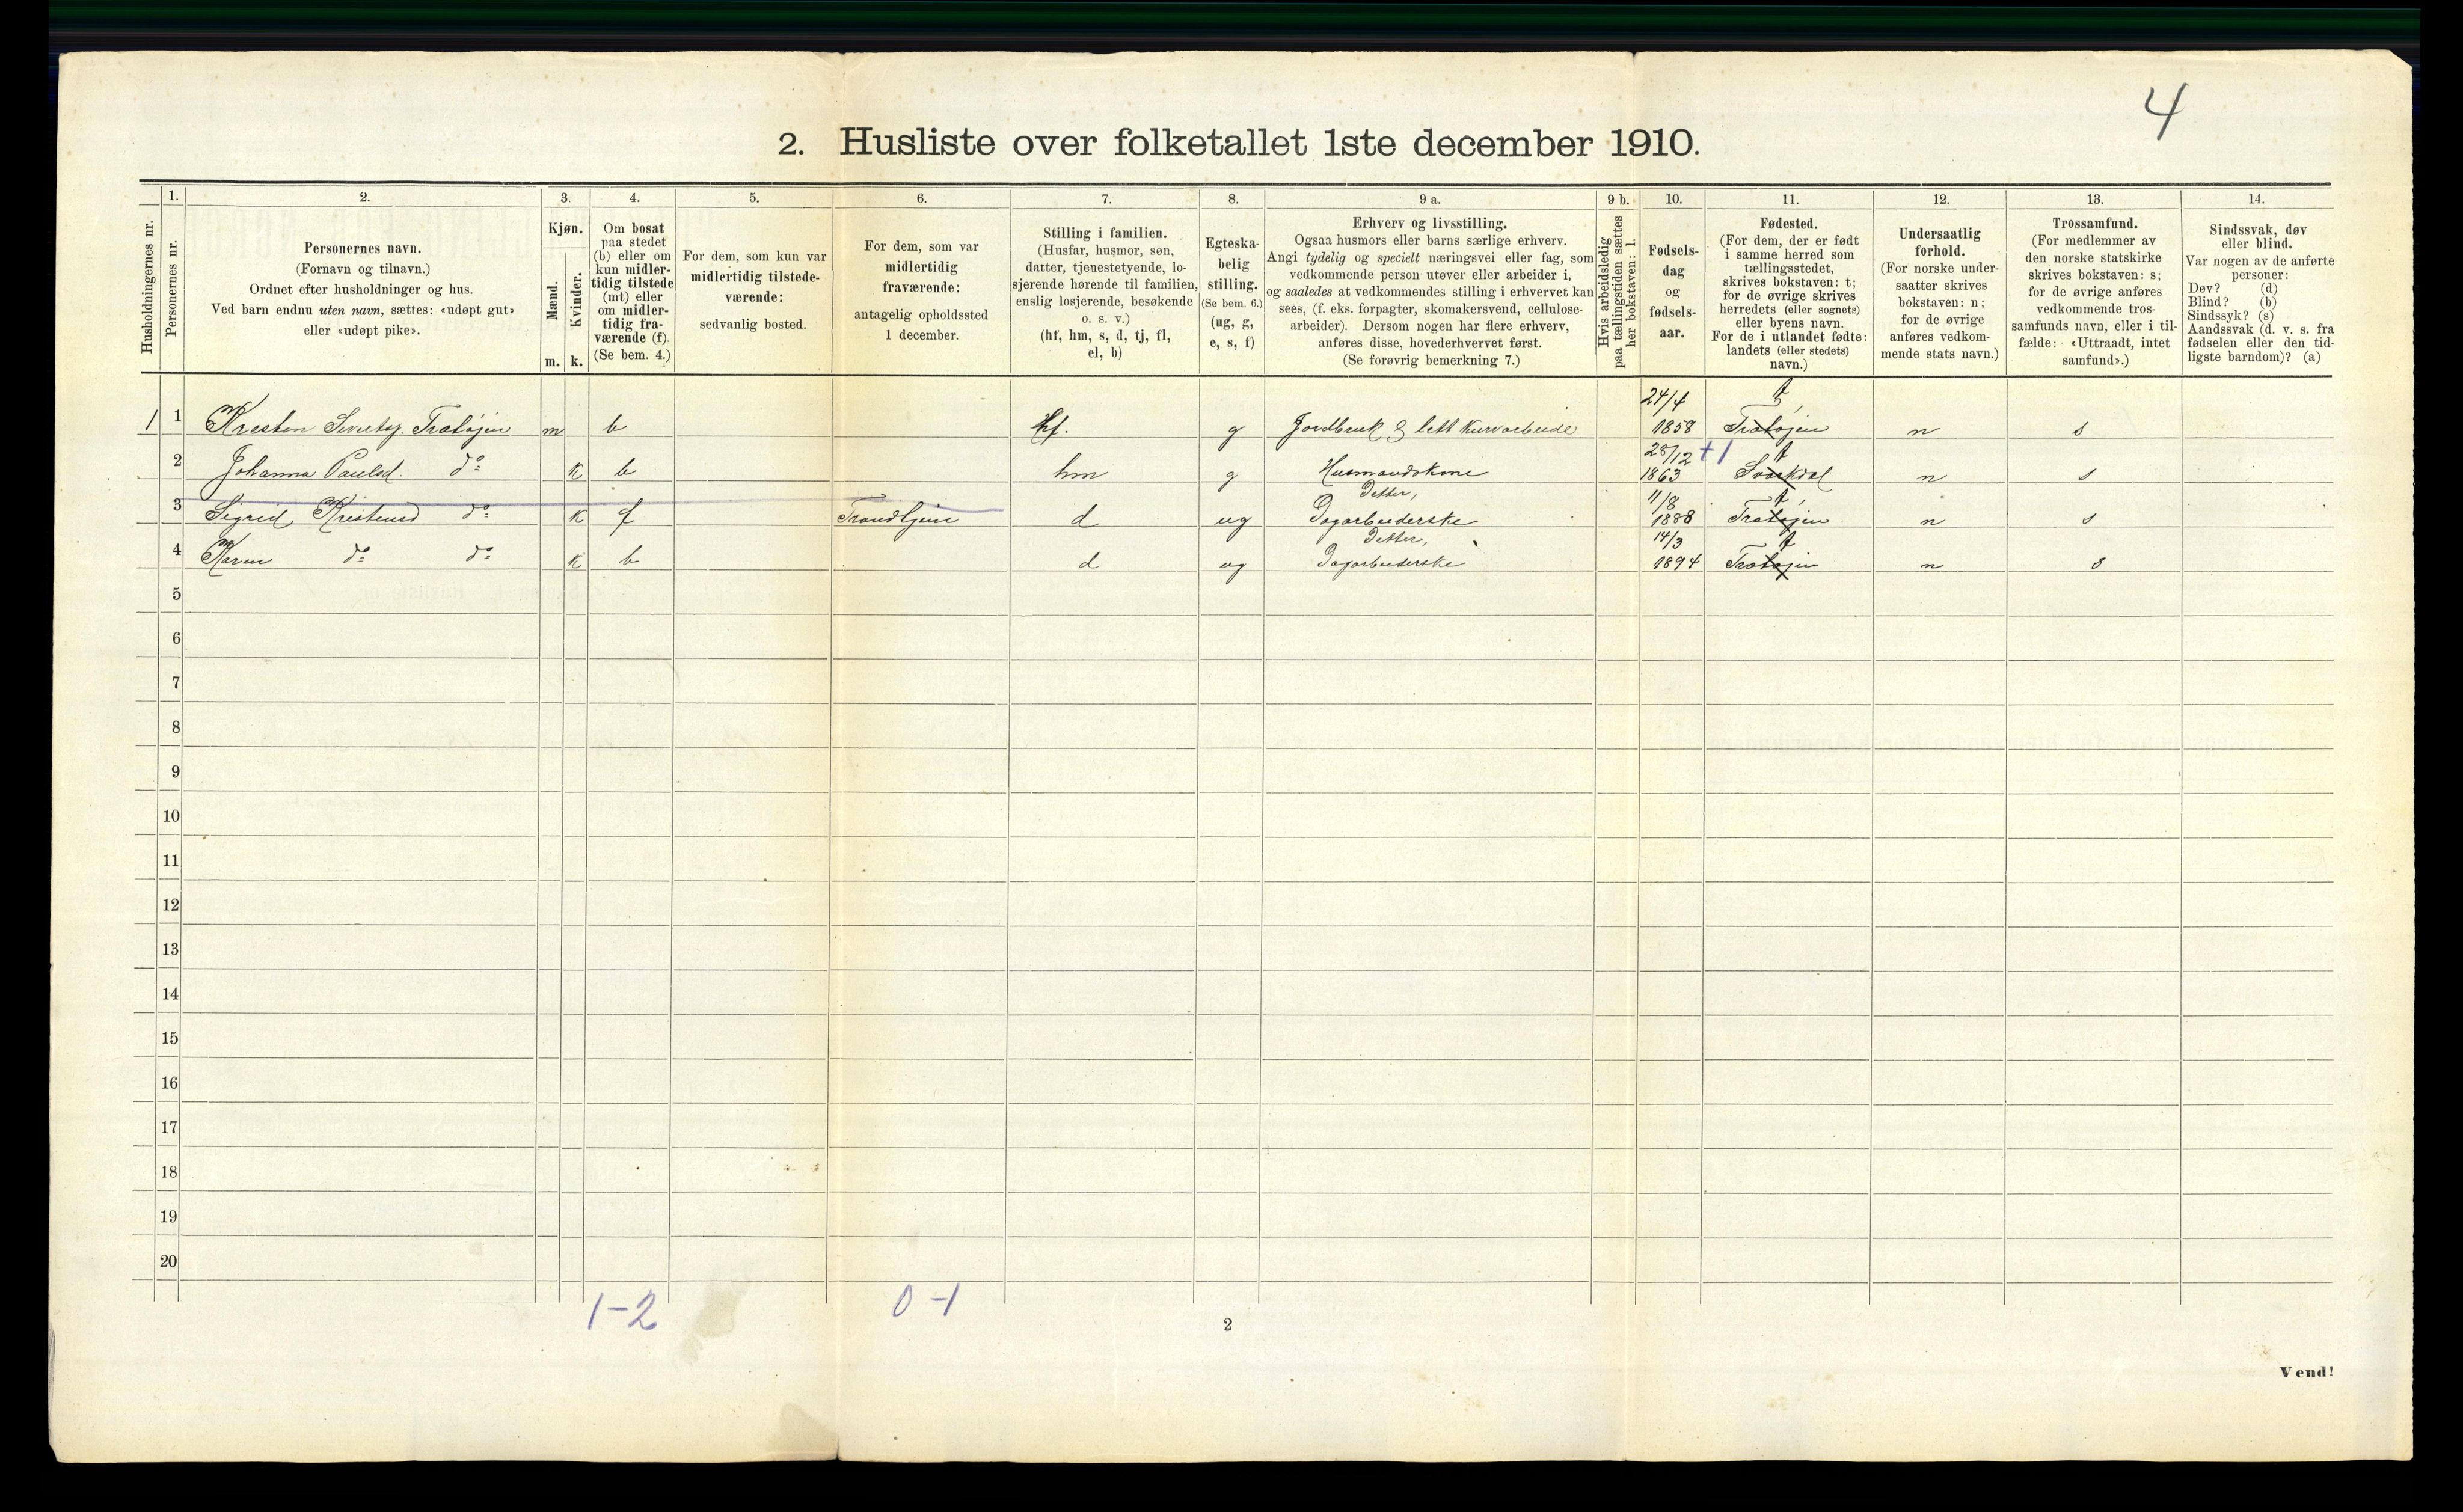 4
2. Husliste over folketallet 1ste december 1910.
Husholdningernes nr.
1.
Personernes nr.
2.
Personernes navn.
(Fornavn og tilnavn.)
Ordnet efter husholdninger og hus.
Ved barn endnu uten navn, sættes: «udøpt gut»
eller «udøpt pike».
3.
Kjøn.
Mænd.
Kvinder.
m. k.
4.
Om bosat
paa stedet
(b) eller om
kun midler-
tidig tilstede
(mt) eller
om midler-
tidig fra-
værende (f).
(Se bem. 4.)
5.
For dem, som kun var
midlertidig tilstede-
værende:
sedvanlig bosted.
6.
For dem, som var
midlertidig
fraværende:
antagelig opholdssted
1 december.
7.
Stilling i familien.
(Husfar, husmor, søn,
datter, tjenestetyende, lo-
sjerende hørende til familien,
enslig losjerende, besøkende
o. s. v.)
(hf, hm, s, d, tj, fl,
el, b)
8.
Egteska-
belig
stilling.
(Se bem. 6.)
(ug, g,
e, s, f)
9 a.
Erhverv og livsstilling.
Ogsaa husmors eller barns særlige erhverv.
Angi tydelig og specielt næringsvei eller fag, som
vedkommende person utøver eller arbeider i,
og saaledes at vedkommendes stilling i erhvervet kan
sees, (f. eks. forpagter, skomakersvend, cellulose-
arbeider). Dersom nogen har flere erhverv,
anføres disse, hovederhvervet først.
(Se forøvrig bemerkning 7.)
9 b.
Hvis arbeidsledig
paa tællingstiden sættes
her bokstaven: l.
10.
Fødsels-
dag
og
fødsels-
aar.
11.
Fødested.
(For dem, der er født
i samme herred som
tællingsstedet,
skrives bokstaven: t;
for de øvrige skrives
herredets (eller sognets)
eller byens navn.
For de i utlandet fødte:
landets (eller stedets)
navn.)
12.
Undersaatlig
forhold.
(For norske under-
saatter skrives
bokstaven: n;
for de øvrige
anføres vedkom-
mende stats navn.)
13.
Trossamfund.
(For medlemmer av
den norske statskirke
skrives bokstaven: s;
for de øvrige anføres
vedkommende tros-
samfunds navn, eller i til-
fælde: «Uttraadt, intet
samfund».)
14.
Sindssvak, døv
eller blind.
Var nogen av de anførte
personer:
Døv? (d)
Blind? (b)
Sindssyk? (s)
Aandssvak (d. v. s. fra
fødselen eller den tid-
ligste barndom)? (a)
24/4 t
1 1 Kresten Trøtøjen m b Hf. g Jordbruk & lett Kurvarbeide 1858 Trøtøjen n s
28/12 +1 t
2 Johanna Paulsd. do k b hm g Husmandskone 1863 n s
Datter, 11/8 t
3 Sigrid Krestensd do k f Trondhjem d ug Dagarbeiderske 1888 Trøtøjen n s
Datter, 14/3 t
4 Karen do do k b d ug Dagarbeiderske 1894 Trøtøjen n s
5
6
7
8
9
10
11
12
13
14
15
16
17
18
19
20
1-2 0-1
2
Vend!